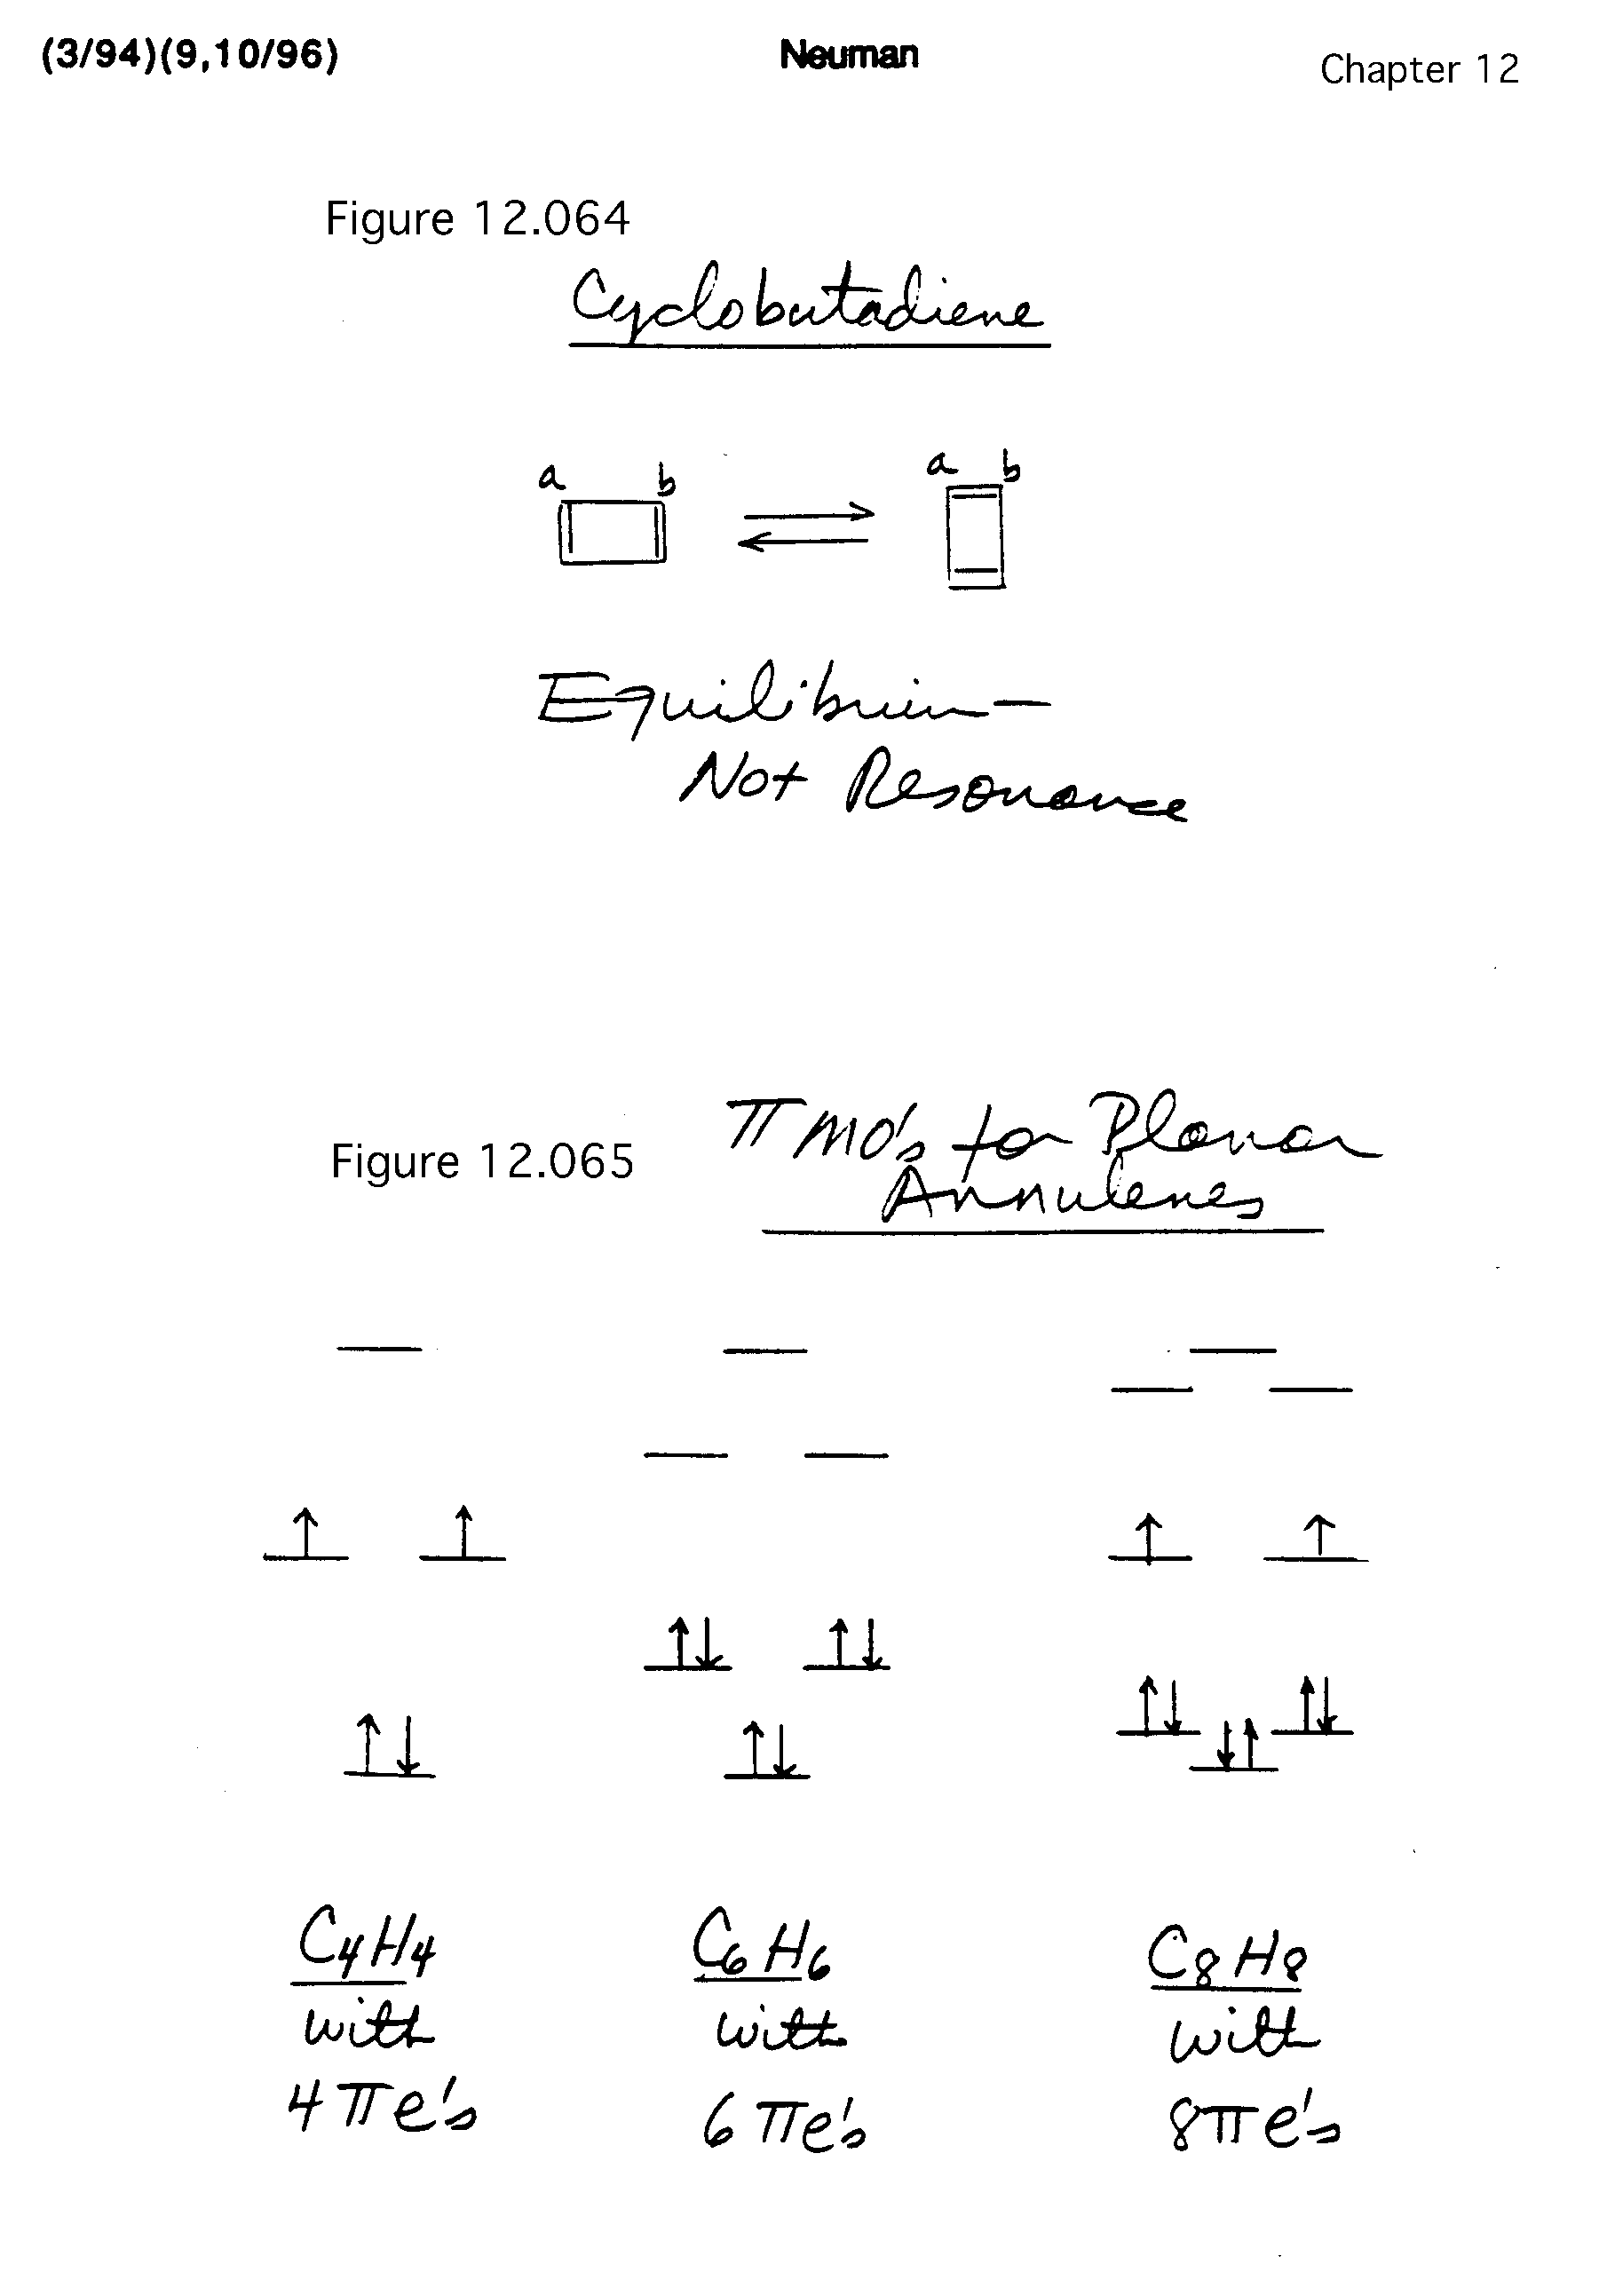 (3/94)(9,10/96) Neuman Chapter 12
Figure 12.064
Cyclobutadiene
a b a b
Equilibrium—
Not Resonance
Figure 12.065
π MO's for Planar
Annulenes
C₄H₄ C₆H₆ C₈H₈
with with with
4 π e's 6 π e's 8 π e's